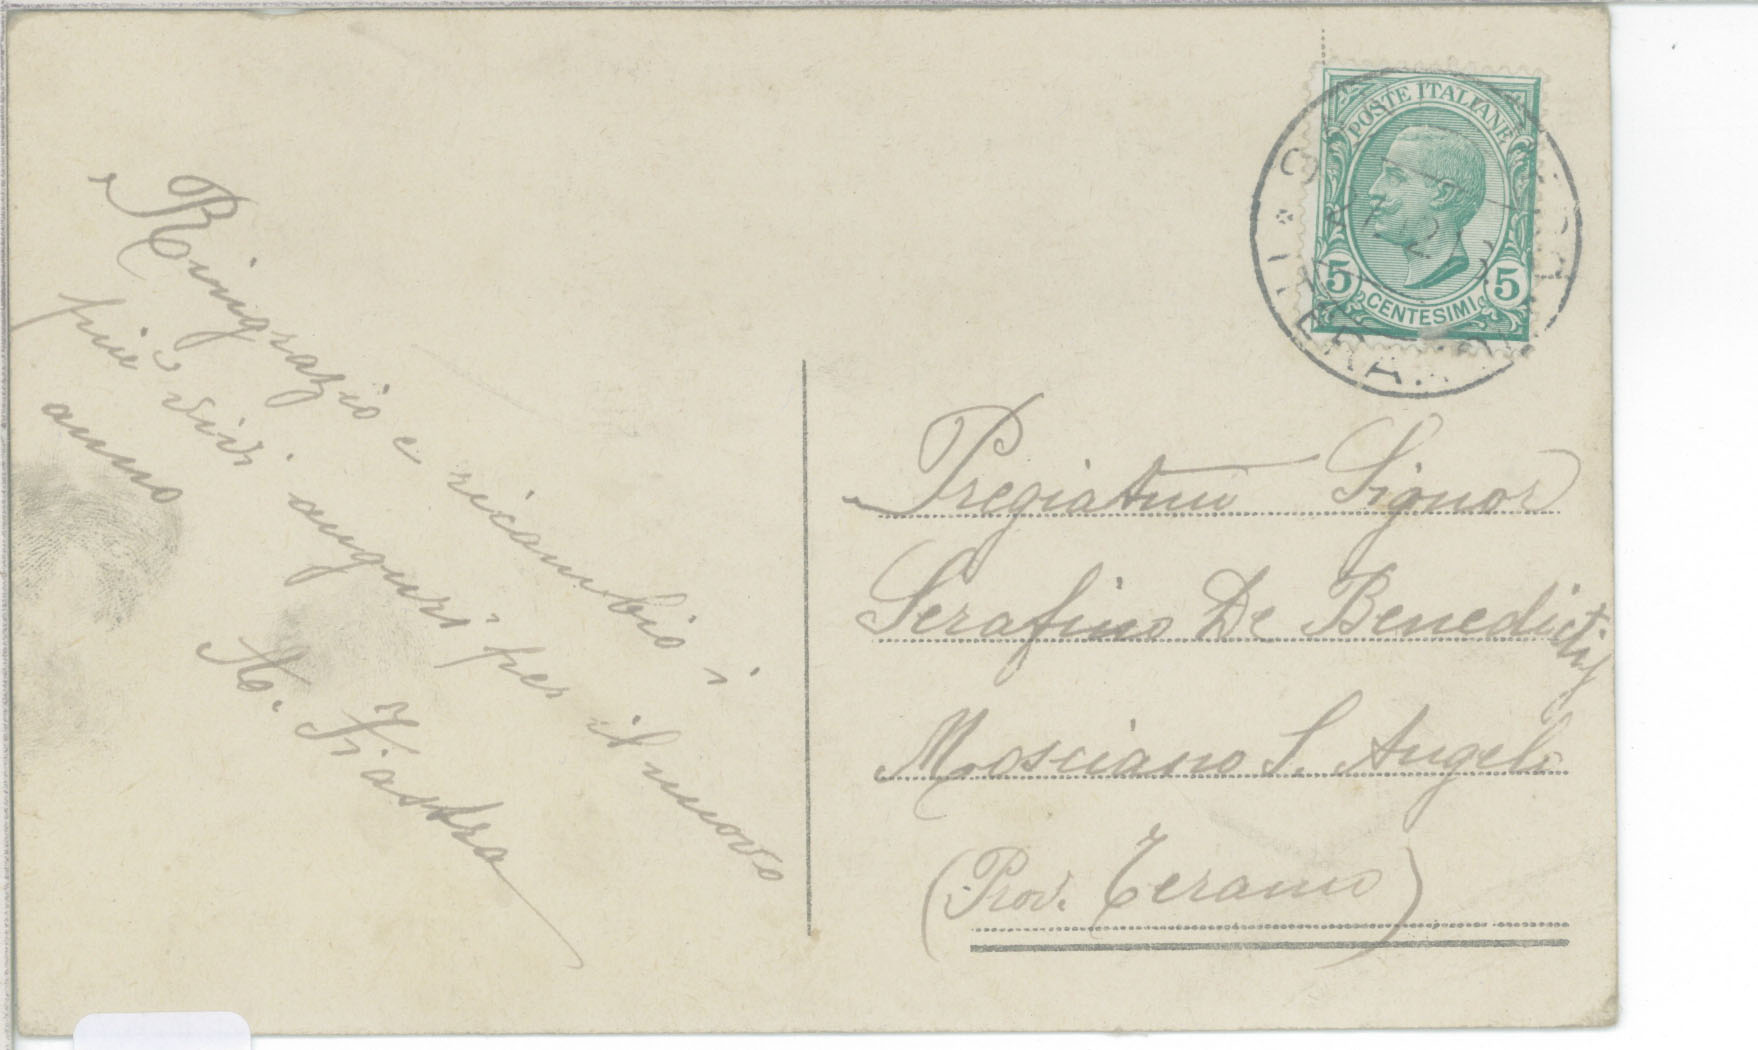 Ringrazio e ricambio i
più vivi auguri per il nuovo
anno
Fiastra
POSTE ITALIANE
5 CENTESIMI 5
Pregiatmo Signor
Serafino De Benedictis
Mosciano S. Angelo
(Prov. Teramo)